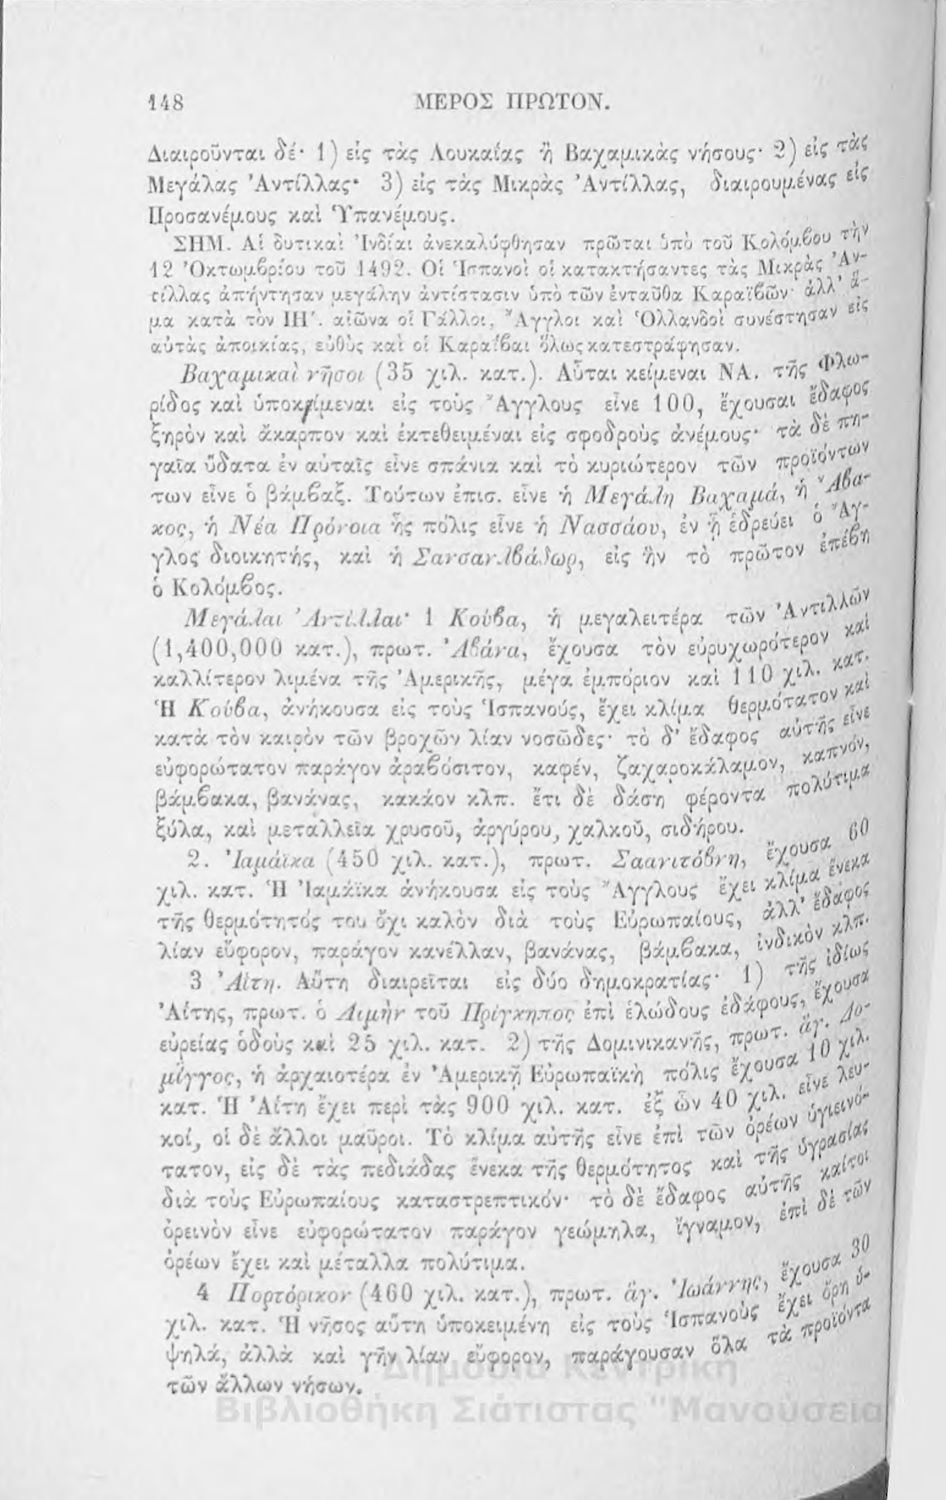 148 ΜΕΡΟΣ ΠΡΩΤΟΝ.
Διαιροῦνται δέ· 1) εἰς τὰς Λουκαΐας ἢ Βαχαμικὰς νήσους· 2) εἰς τὰς
Μεγάλας Ἀντίλλας· 3) εἰς τὰς Μικρὰς Ἀντίλλας, διαιρουμένας εἰς
Προσανέμους καὶ Ὑπανέμους.
ΣΗΜ. Αἱ δυτικαὶ Ἰνδίαι ἀνεκαλύφθησαν πρῶται ὑπὸ τοῦ Κολόμβου τὴν
12 Ὀκτωμβρίου τοῦ 1492. Οἱ Ἱσπανοὶ οἱ κατακτήσαντες τὰς Μικρὰς Ἀν-
τίλλας ἀπήντησαν μεγάλην ἀντίστασιν ὑπὸ τῶν ἐνταῦθα Καραϊβῶν· ἀλλ' ἅ-
μα κατὰ τὸν ΙΗ΄. αἰῶνα οἱ Γάλλοι, Ἄγγλοι καὶ Ὁλλανδοὶ συνέστησαν εἰς
αὐτὰς ἀποικίας, εὐθὺς καὶ οἱ Καραΐβαι ὅλως κατεστράφησαν.
Βαχαμικαὶ νῆσοι (35 χιλ. κατ.). Αὗται κείμεναι ΝΑ. τῆς Φλω-
ρίδος καὶ ὑποκείμεναι εἰς τοὺς Ἄγγλους εἶνε 100, ἔχουσαι ἔδαφος
ξηρὸν καὶ ἄκαρπον καὶ ἐκτεθειμέναι εἰς σφοδροὺς ἀνέμους· τὰ δὲ πη-
γαῖα ὕδατα ἐν αὐταῖς εἶνε σπάνια καὶ τὸ κυριώτερον τῶν προϊόντων
των εἶνε ὁ βάμβαξ. Τούτων ἐπισ. εἶνε ἡ Μεγάλη Βαχαμά, ἡ Ἄβα-
κος, ἡ Νέα Πρόνοια ἧς πόλις εἶνε ἡ Νασσάου, ἐν ᾗ ἑδρεύει ὁ Ἄγ-
γλος διοικητής, καὶ ἡ Σανσαλβάδωρ, εἰς ἣν τὸ πρῶτον ἐπέβη
ὁ Κολόμβος.
Μεγάλαι Ἀντίλλαι· 1 Κούβα, ἡ μεγαλειτέρα τῶν Ἀντιλλῶν
(1,400,000 κατ.), πρωτ. Ἀβάνα, ἔχουσα τὸν εὐρυχωρότερον καὶ
καλλίτερον λιμένα τῆς Ἀμερικῆς, μέγα ἐμπόριον καὶ 110 χιλ. κατ.
Ἡ Κούβα, ἀνήκουσα εἰς τοὺς Ἱσπανούς, ἔχει κλίμα θερμότατον καὶ
κατὰ τὸν καιρὸν τῶν βροχῶν λίαν νοσῶδες· τὸ δ' ἔδαφος αὐτῆς εἶνε
εὐφορώτατον παράγον ἀραβόσιτον, καφέν, ζαχαροκάλαμον, καπνόν,
βάμβακα, βανάνας, κακάον κλπ. ἔτι δὲ δάση φέροντα πολύτιμα
ξύλα, καὶ μεταλλεῖα χρυσοῦ, ἀργύρου, χαλκοῦ, σιδήρου.
2. Ἰαμάϊκα (450 χιλ. κατ.), πρωτ. Σαανιτόβνη, ἔχουσα 60
χιλ. κατ. Ἡ Ἰαμάϊκα ἀνήκουσα εἰς τοὺς Ἄγγλους ἔχει κλίμα ἕνεκα
τῆς θερμότητός του ὄχι καλὸν διὰ τοὺς Εὐρωπαίους, ἀλλ' ἔδαφος
λίαν εὔφορον, παράγον κανέλλαν, βανάνας, βάμβακα, ἰνδικὸν κλπ.
3 Ἀΐτη. Αὕτη διαιρεῖται εἰς δύο δημοκρατίας· 1) τῆς ἰδίως
Ἀΐτης, πρωτ. ὁ Λιμὴν τοῦ Πρίγκηπος ἐπὶ ἑλώδους ἐδάφους, ἔχουσα
εὐρείας ὁδοὺς καὶ 25 χιλ. κατ. 2) τῆς Δομινικανῆς, πρωτ. ἅγ. Δο-
μίγγος, ἡ ἀρχαιοτέρα ἐν Ἀμερικῇ Εὐρωπαϊκὴ πόλις ἔχουσα 10 χιλ.
κατ. Ἡ Ἀΐτη ἔχει περὶ τὰς 900 χιλ. κατ. ἐξ ὧν 40 χιλ. εἶνε λευ-
κοί, οἱ δὲ ἄλλοι μαῦροι. Τὸ κλίμα αὐτῆς εἶνε ἐπὶ τῶν ὀρέων ὑγιεινό-
τατον, εἰς δὲ τὰς πεδιάδας ἕνεκα τῆς θερμότητος καὶ τῆς ὑγρασίας
διὰ τοὺς Εὐρωπαίους καταστρεπτικόν· τὸ δὲ ἔδαφος αὐτῆς καίτοι
ὀρεινὸν εἶνε εὐφορώτατον παράγον γεώμηλα, ἴγναμον, ἐπὶ δὲ τῶν
ὀρέων ἔχει καὶ μέταλλα πολύτιμα.
4 Πορτόρικον (460 χιλ. κατ.), πρωτ. ἅγ. Ἰωάννης, ἔχουσα 30
χιλ. κατ. Ἡ νῆσος αὕτη ὑποκειμένη εἰς τοὺς Ἱσπανοὺς ἔχει ὄρη ὑ-
ψηλά, ἀλλὰ καὶ γῆν λίαν εὔφορον, παράγουσαν ὅλα τὰ προϊόντα
τῶν ἄλλων νήσων.
Δημόσια Κεντρική
Βιβλιοθήκη Σιάτιστας "Μανούσεια